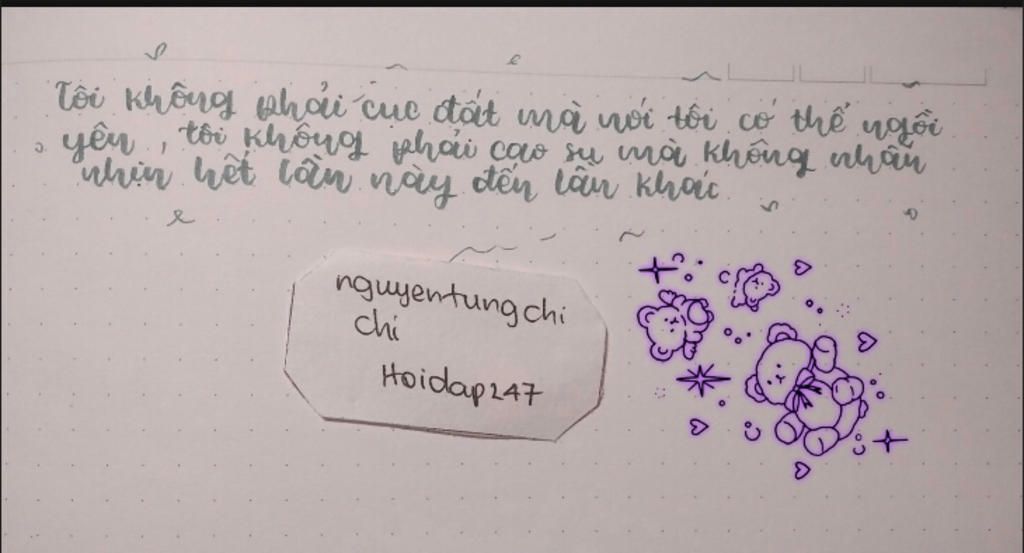 Tôi không phải cục đất mà nói tôi có thể ngồi
yên, tôi không phải cao su mà không nhẫn
nhịn hết lần này đến lần khác
nguyentungchi
chi
Hoidap247